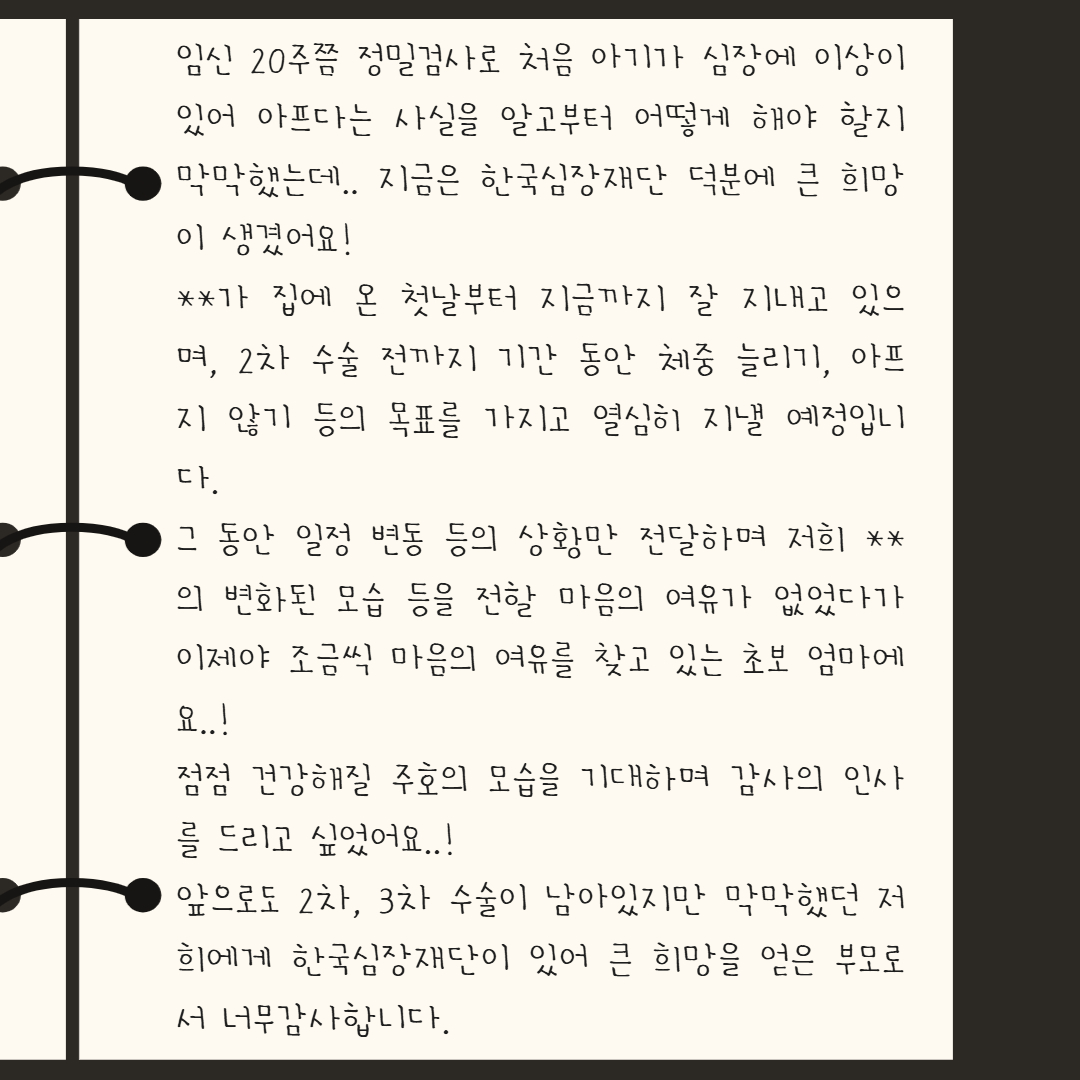 임신 20주쯤 정밀검사로 처음 아기가 심장에 이상이
있어 아프다는 사실을 알고부터 어떻게 해야 할지
막막했는데.. 지금은 한국심장재단 덕분에 큰 희망
이 생겼어요!
**가 집에 온 첫날부터 지금까지 잘 지내고 있으
며, 2차 수술 전까지 기간 동안 체중 늘리기, 아프
지 않기 등의 목표를 가지고 열심히 지낼 예정입니
다.
그 동안 일정 변동 등의 상황만 전달하며 저희 **
의 변화된 모습 등을 전할 마음의 여유가 없었다가
이제야 조금씩 마음의 여유를 찾고 있는 초보 엄마에
요..!
점점 건강해질 주호의 모습을 기대하며 감사의 인사
를 드리고 싶었어요..!
앞으로도 2차, 3차 수술이 남아있지만 막막했던 저
희에게 한국심장재단이 있어 큰 희망을 얻은 부모로
서 너무감사합니다.